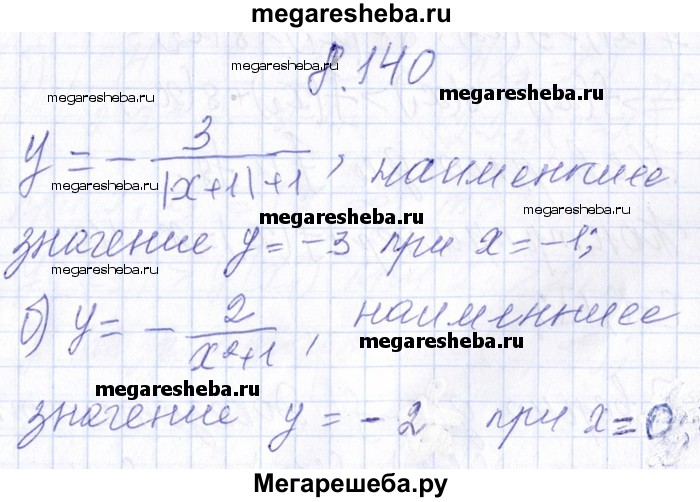 megaresheba.ru
р. 140
megaresheba.ru
megaresheba.ru
megaresheba.ru
y = - 3 / |x+1|+1 , наименьшее
megaresheba.ru
megaresheba.ru
megaresheba.ru
значение y = -3 при x = -1;
megaresheba.ru
б) y = - 2 / x²+1 , наименьшее
megaresheba.ru
megaresheba.ru
значение y = -2 при x = 0;
Мегарешеба.ру